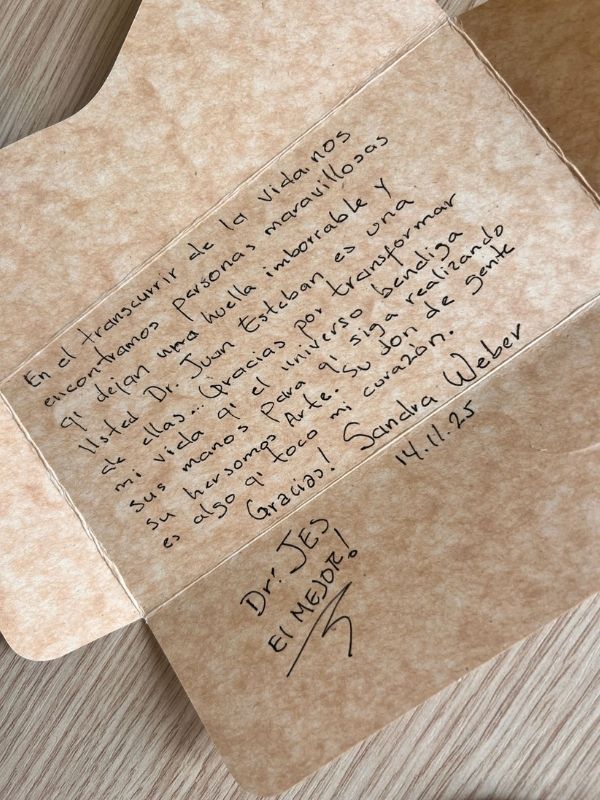 En el transcurrir de la vida nos
encontramos personas maravillosas
q' dejan una huella imborrable y
Usted Dr. Juan Esteban es una
de ellas... Gracias por transformar
mi vida q' el universo bendiga
sus manos para q' siga realizando
su hersomos Arte. Su don de gente
es algo q' toco mi corazón.
Gracias! Sandra Weber
14.11.25
Dr: JES
El MEJOR!